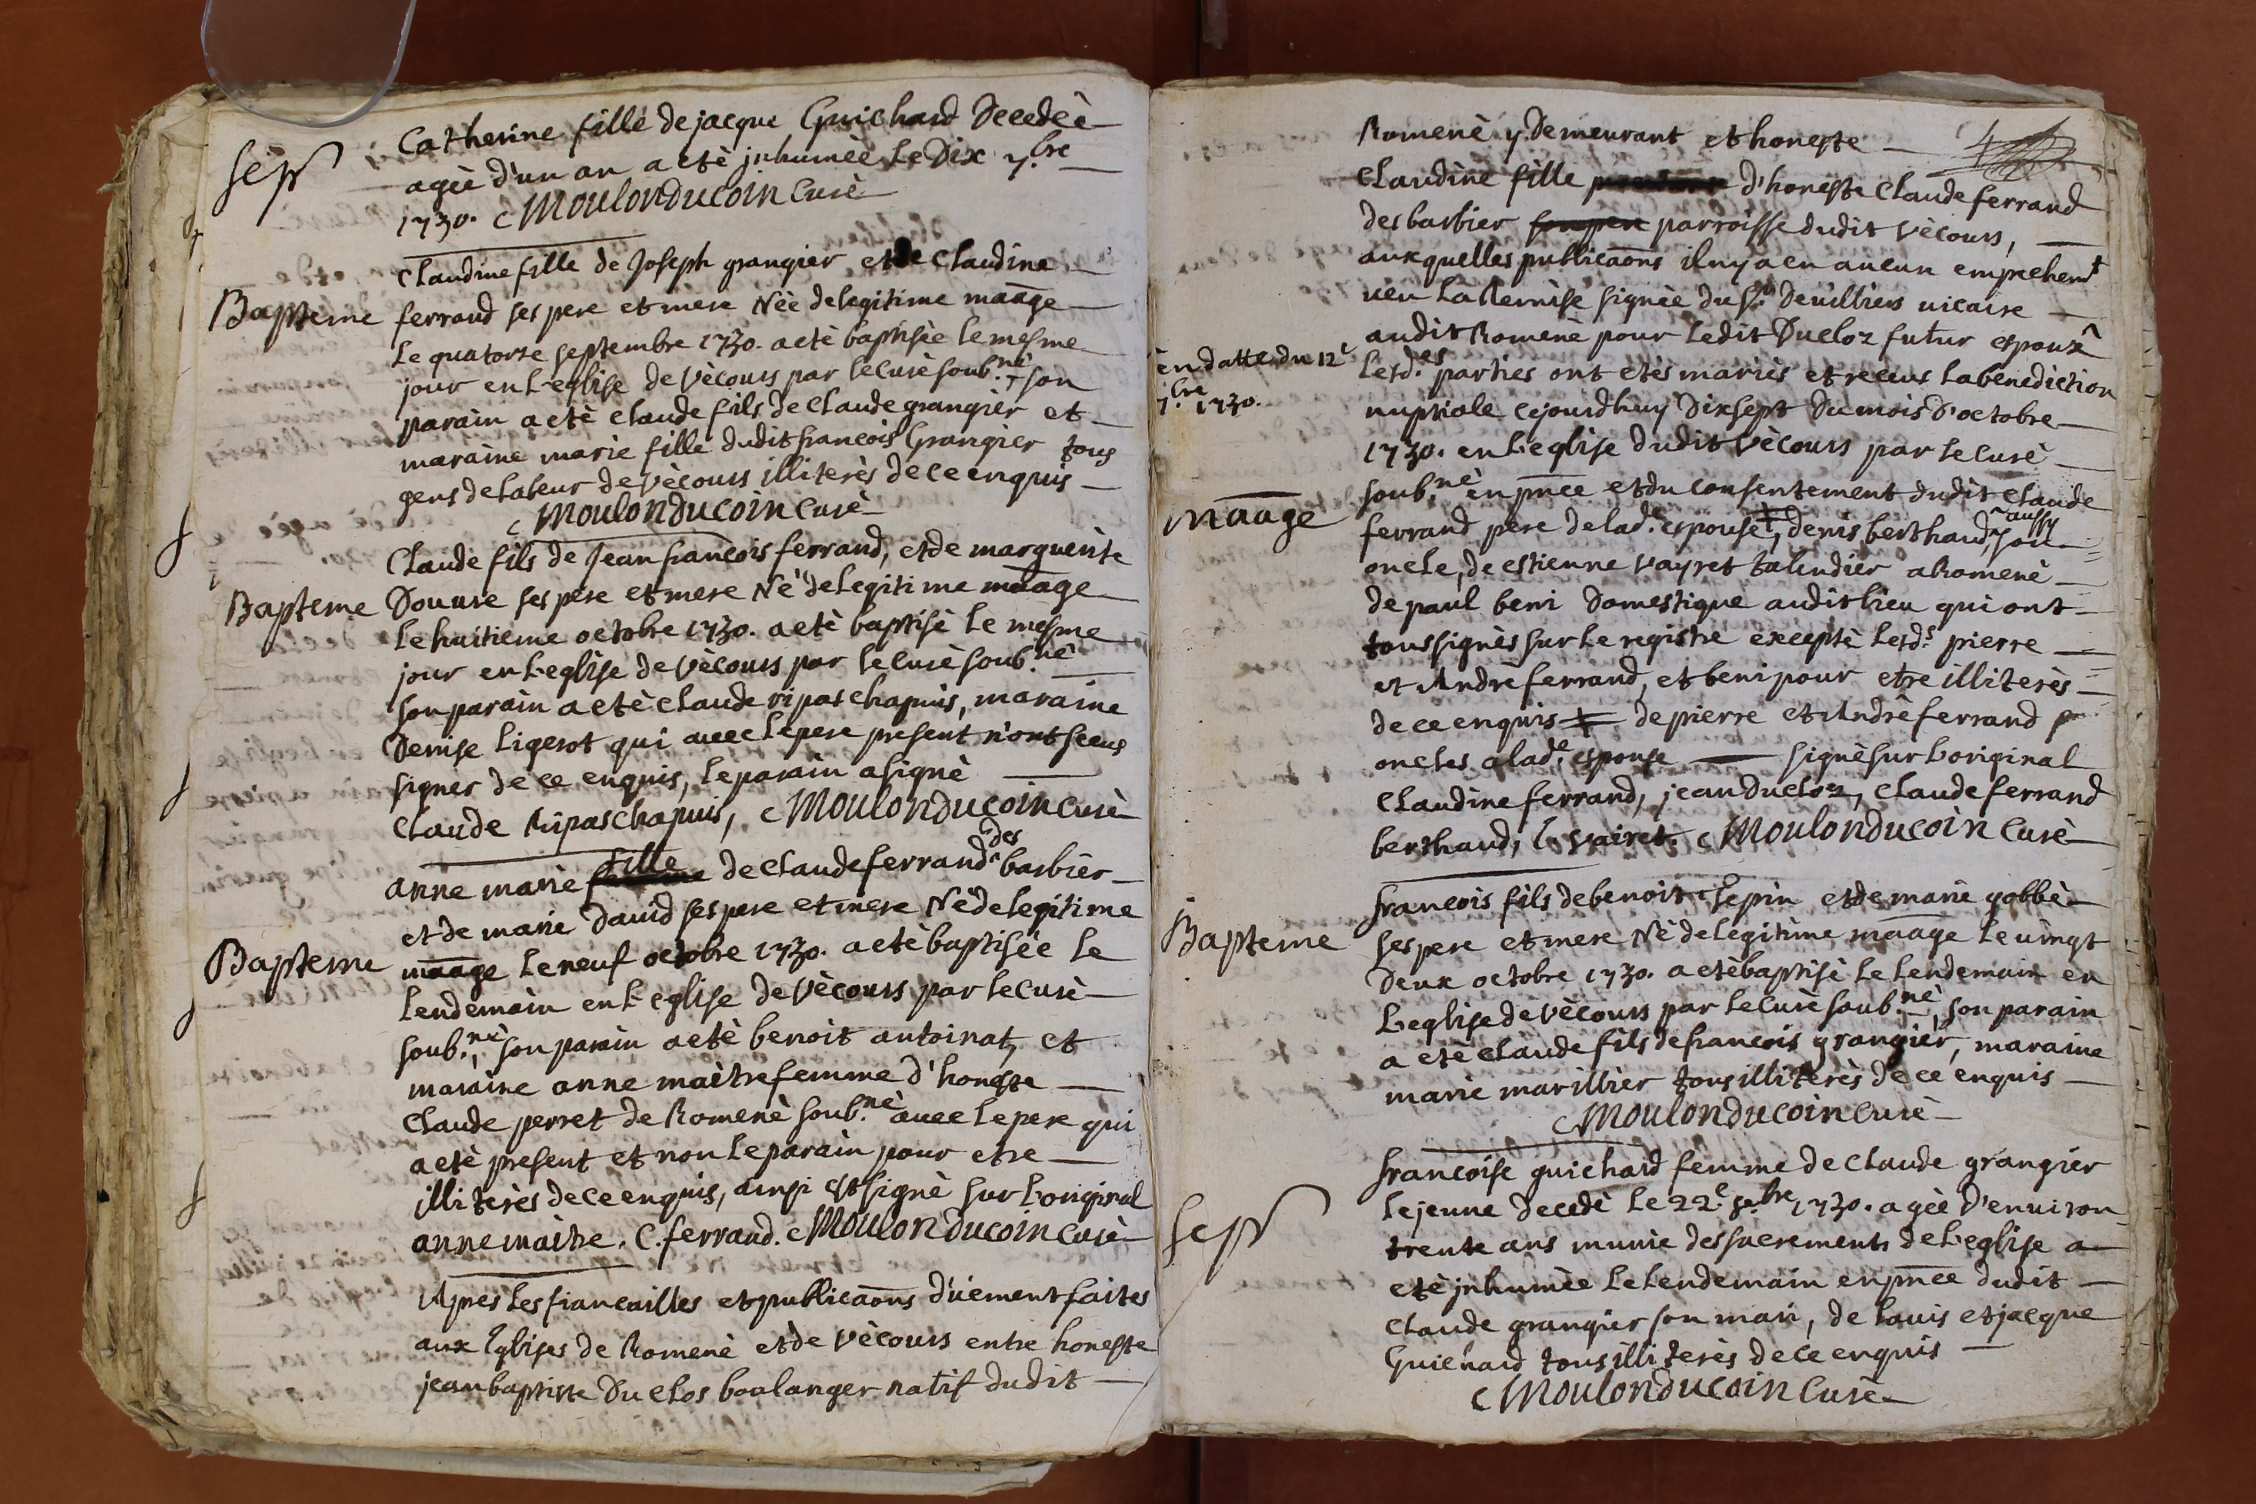 Catherine fille de jacque Guichard Decedeè
sepr
ageè d'un an a etè jnhumeè Le Dix 7.bre
1730. C Moulonducoin Curè
Claudine fille de Joseph grangier et de Claudine
Bapteme
ferrand ses pere et mere Nèe de legitime maage
Le quatorze septembre 1730. a etè baptisèe le mesme
jour en L'eglise de Vècours par le Curè soub.nè, son
parain a etè Claude fils de Claude grangier et
maraine marie fille dudit francois Grangier tous
gens de labeur de Vècours illiterès de ce enquis
C Moulonducoin Curè
Claude fils de Jean francois ferrand, et de marguerite
Bapteme
Douure ses pere et mere Nè de legitime maage
Le huitieme octobre 1730. a etè baptisè Le mesme
jour en L'eglise de Vècours par le Curè soub.nè
son parain a etè Claude ripas chapuis, maraine
Denise Ligerot qui avec le pere present n'ont sceus
signer de ce enquis, le parain a signè
Claude Ripas chapuis, C Moulonducoin Curè
anne marie fille de Claude ferrand des barbier
et de marie David ses pere et mere Nè de legitime
Bapteme
maage Le neuf octobre 1730. a etè baptisèe Le
Lendemain en L'eglise de Vècours par le Curè
soub.nè, son parain a etè benoit antoinat, et
maraine anne maitre femme d'honeste
Claude perret de Romenè soub.nè avec le pere qui
a etè present et non le parain pour etre
illiterès de ce enquis, ainsi est signè sur L'original
anne maitre. C. ferrand. C Moulonducoin Curè
Apres Les fiancailles et publicaons düement faites
aux Eglises de Romenè et de Vècours entre honeste
jean baptiste Duclos boulanger natif dudit
Romenè y Demeurant et honeste
4
Claudine fille d'honeste Claude ferrand
des barbier son pere parroisse dudit Vècours,
auxquelles publicaons il ny a eu aucun empechemt
veu La Remise signèe du Sr. Devilliers vicaire
audit Romenè pour Ledit Ducloz futur espoux ^
en datte du 12e
7.bre 1730.
Lesd.es parties ont etès mariès et receus La benediction
nuptiale cejourdhuy Dixsept du mois d'octobre
1730. en L'eglise dudit Vècours par le Curè
maage
soub.nè en pnce et du consentement dudit Claude
ferrand pere de lad.e espouse ‡, denis berthaud ^aussy son
oncle, de estienne Vayret talendier a Romenè
de paul beni Domestique audit lieu qui ont
tous signès sur Le registre exceptè Lesd.s pierre
et Andrè ferrand, et beni pour etre illiterès
de ce enquis ‡ de pierre et Andrè ferrand
oncles a lad.e espouse signè sur L'original
Claudine ferrand, jean Ducloz, Claude ferrand
berthaud, E Vairet. C Moulonducoin Curè
francois fils de benoit Sepin et de marie gobbè
Bapteme
ses pere et mere Nè de Legitime maage Le vingt
Deux octobre 1730. a etè baptisè Le Lendemain en
L'eglise de Vècours par le Curè soub.nè, son parain
a etè Claude fils de francois grangier, maraine
marie marillier tous illiterès de ce enquis
C Moulonducoin Curè
francoise guichard femme de Claude grangier
sepr
Le jeune decedè Le 22e 8.bre 1730. agèe d'environ
trente ans munie des sacrements de L'eglise a
etè jnhumèe Le Lendemain en pnce dudit
Claude grangier son mari, de Louis et jacque
Guichard tous illiterès de ce enquis
C Moulonducoin Curè